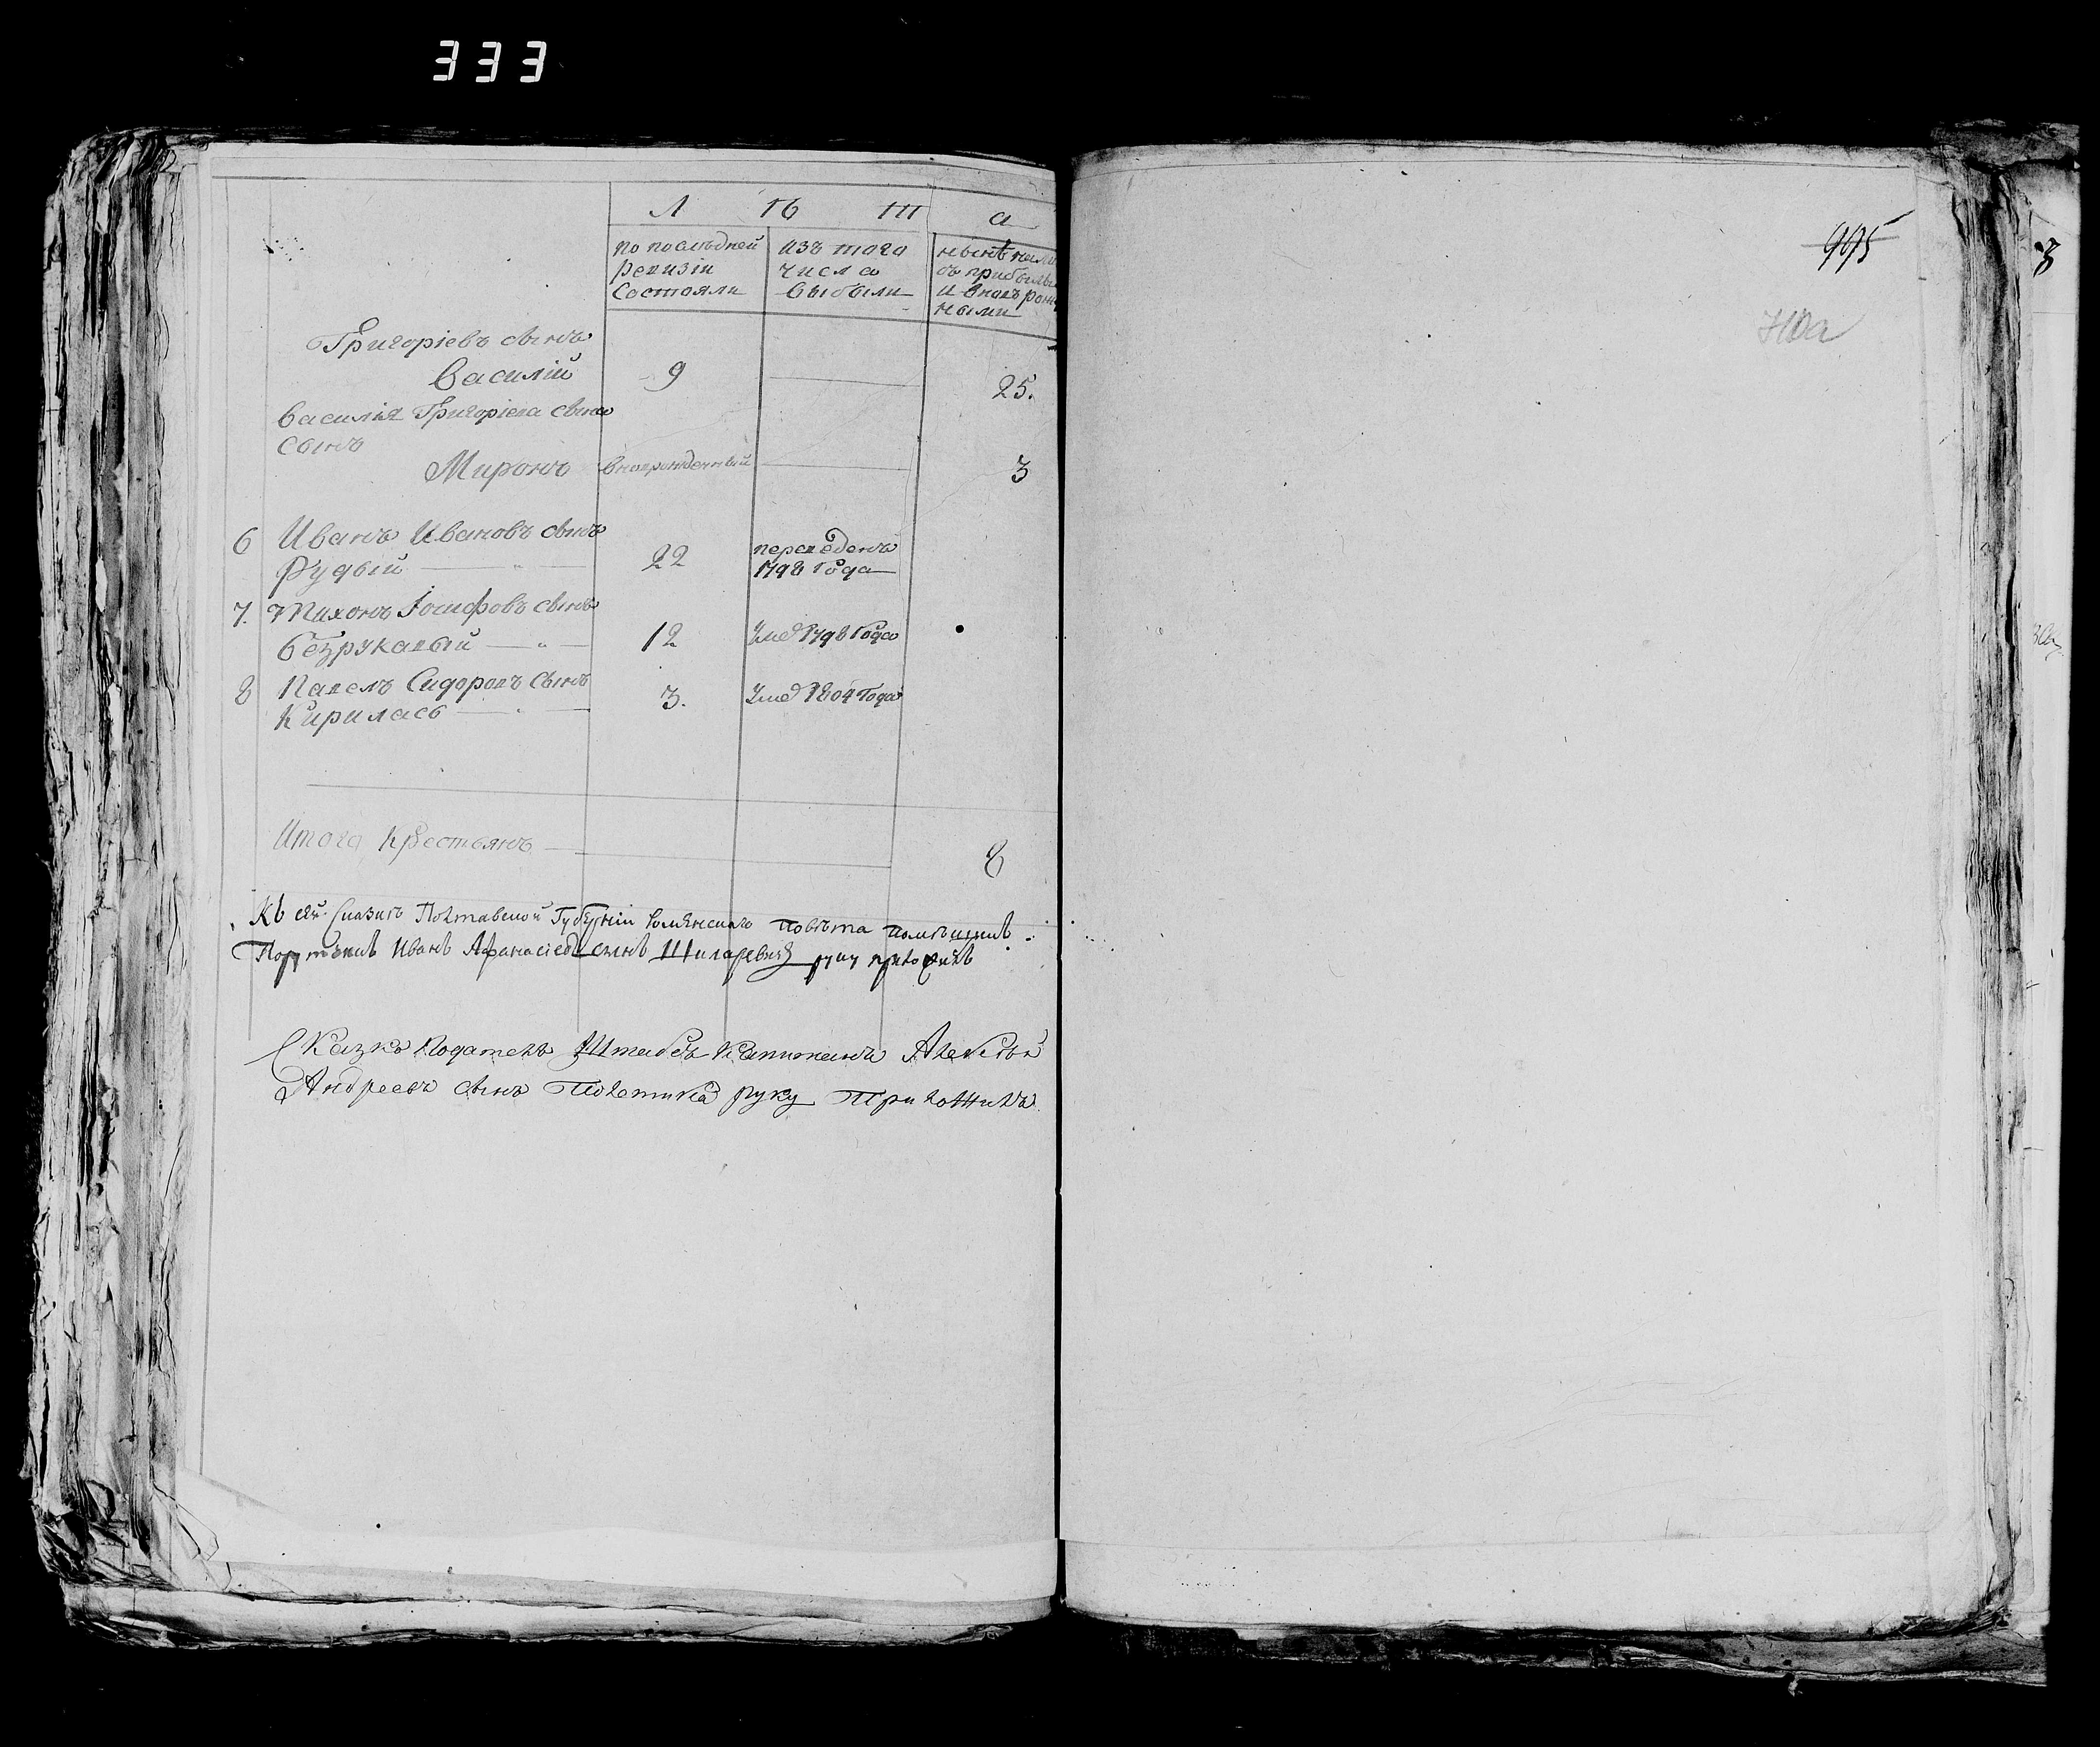 333
Л ѣ та
по послѣдней ревизіи состояли
изъ того числа выбыли
нынѣ на лицо съ прибылы и вновь рожден ными
Григоріевъ сынъ
Василій 9 25.
Василія Григоріева сына
сынъ
Миронъ вноврожденный 3
6 Иванъ Ивановъ сынъ
Рудый 22 переведенъ 1798 Года
7. Тихонъ Іосифовъ сынъ
Безрукавый 12 Умер 1798 Года
8 Павелъ Сидоровъ сынъ
Кирилась 3. Умер 1804 Года
Итого крестьянъ 8
Къ сей Сказкѣ Полтавской Губерніи Роменскаго повѣта помѣщикъ
Порутчикъ Иванъ Афанасіевъ сынъ руку приложилъ
Сказко подателъ Штабсъ капитанъ Алексѣй
Андреевъ сынъ Полетика руку Приложилъ
905
710а